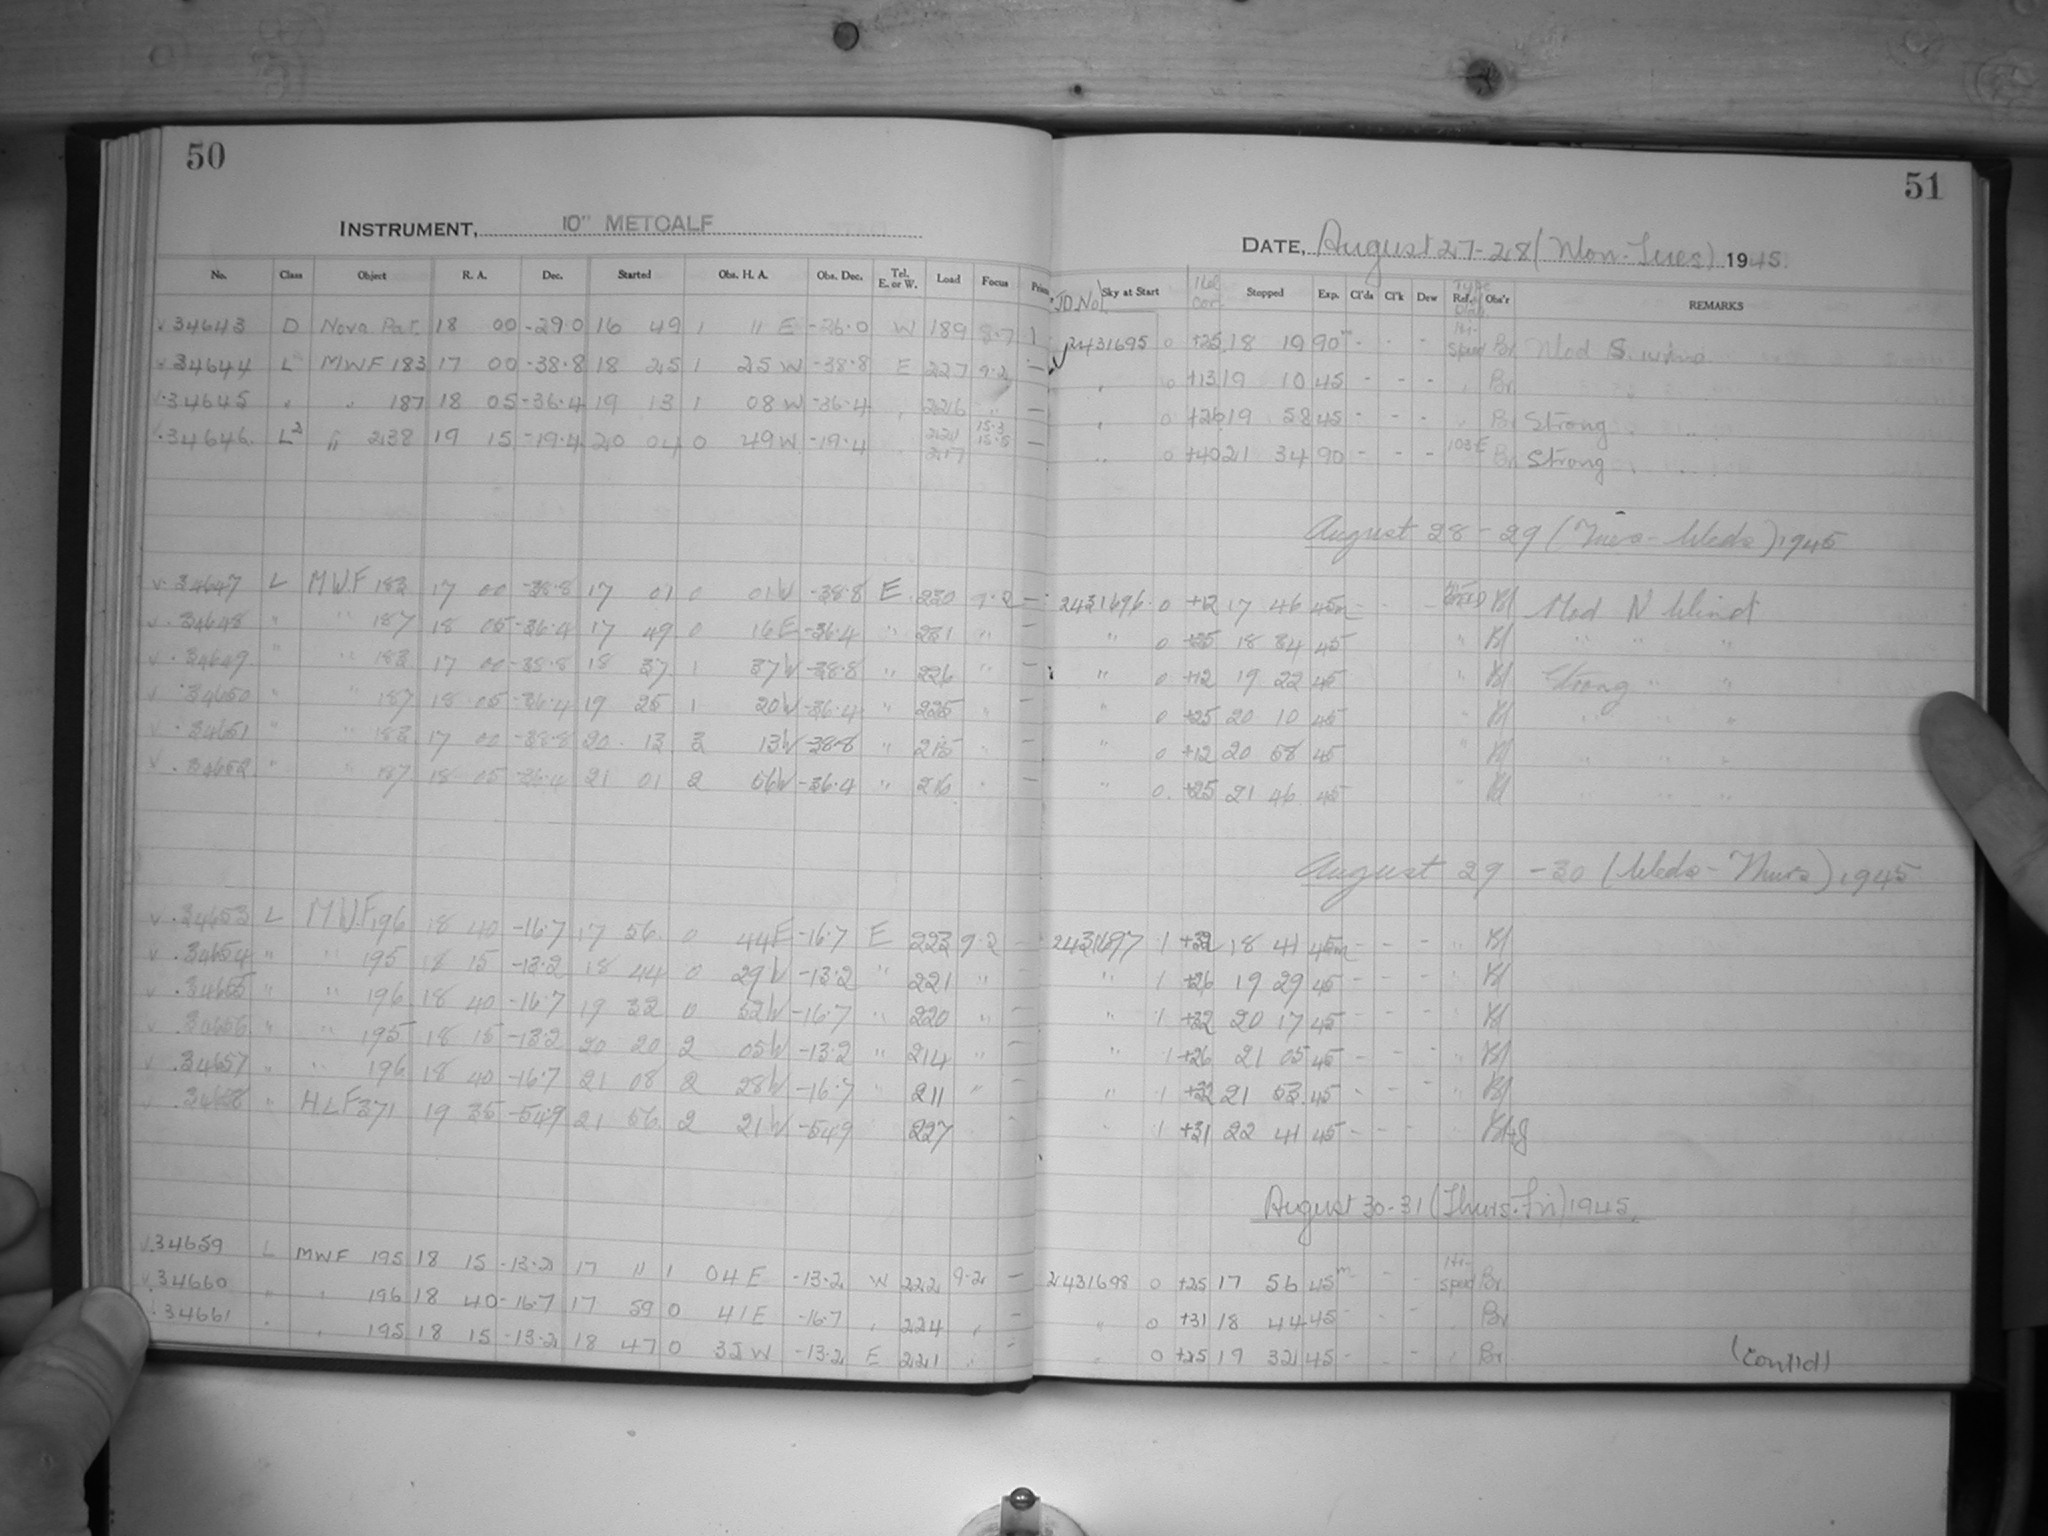 50
INSTRUMENT, 10" METCALF
No. Class Object R. A. Dec. Started Obs. H. A. Obs. Dec. Tel. E. or W. Load Focus
34643 D Nova Pav. 18 00 -29.0 16 49 1 11 E -26.0 W 189 8.7
34644 L MWF 183 17 00 -38.8 18 25 1 25 W -38.8 E 227 9.2 -
34645 " " 187 18 05 -36.4 19 13 1 08 W -36.4 " 226 " -
34646 L2 " 238 19 15 -19.4 20 04 0 49 W -19.4 -
34647 L MWF 183 17 00 -38.8 17 01 0 01 W -38.8 E 230 9.2 -
34648 " " 187 18 05 -36.4 17 49 0 16 E -36.4 " 231 " -
34649 " " 183 17 00 -38.8 18 37 1 37 W -38.8 " 226 " -
34650 " " 187 18 05 -36.4 19 25 1 20 W -36.4 " 225 " -
34651 " " 183 17 00 -38.8 20 13 3 13 W -38.8 " 215 " -
34652 " " 187 18 05 -36.4 21 01 2 56 W -36.4 " 216 " -
34653 L MWF 196 18 40 -16.7 17 56 0 44 E -16.7 E 223 9.2 -
34654 " " 195 18 15 -13.2 18 44 0 29 W -13.2 " 221 " -
34655 " " 196 18 40 -16.7 19 32 0 52 W -16.7 " 220 " -
34656 " " 195 18 15 -13.2 20 20 2 05 W -13.2 " 214 " -
34657 " " 196 18 40 -16.7 21 08 2 28 W -16.7 " 211 " -
34658 " HLF 371 19 35 -54.9 21 56 2 21 W -54.9 227
34659 L MWF 195 18 15 -13.2 17 11 1 04 E -13.2 W 222 9.2 -
34660 " " 196 18 40 -16.7 17 59 0 41 E -16.7 " 224 " -
34661 " " 195 18 15 -13.2 18 47 0 32 W -13.2 E 221 " -
51
DATE, August 27-28 (Mon-Tues) 1945.
JD No. Sky at Start Stopped Exp. Cl'ds Cl'k Dew Ref. Obs'r REMARKS
2431695 0 +25 18 19 90m - - - Hi-speed Br Mod S. wind
" 0 +13 19 10 45 - - - " Br " " "
" 0 +26 19 58 45 - - - " Br Strong " "
" 0 +40 21 34 90 - - - 103-E Br Strong " "
August 28-29 (Tues-Weds) 1945
2431696 0 +12 17 46 45m Bl Mod N Wind
" 0 +25 18 34 45 " Bl " " "
" 0 +12 19 22 45 " Bl Strong " "
" 0 +25 20 10 45 " Bl " " "
" 0 +12 20 58 45 " Bl " " "
" 0 +25 21 46 45 " Bl " " "
August 29-30 (Weds-Thurs) 1945
2431697 1 +32 18 41 45m - - - " Bl
" 1 +26 19 29 45 - - - " Bl
" 1 +32 20 17 45 - - - " Bl
" 1 +26 21 05 45 - - - " Bl
" 1 +32 21 53 45 - - - " Bl
" 1 +31 22 41 45 - - - "
August 30-31 (Thurs-Fri) 1945.
2431698 0 +25 17 56 45m - - Hi-speed Br
" 0 +31 18 44 45 - - - Br
" 0 +25 19 32 45 - - - Br
(Cont'd)